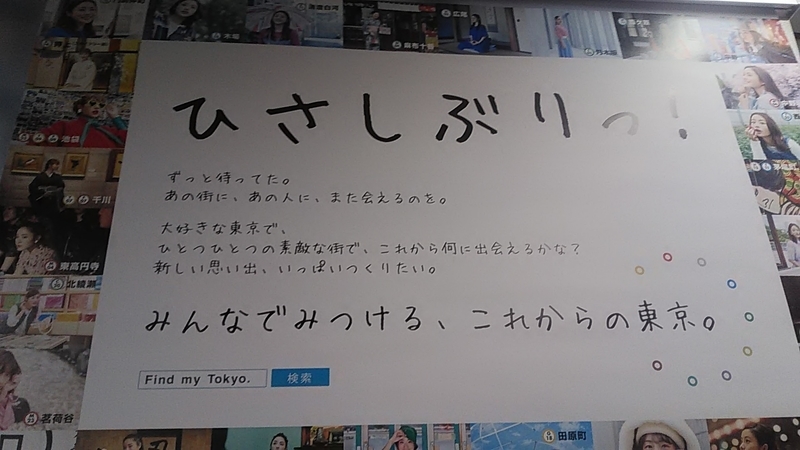 清澄白河
木場
麻布十番
広尾
乃木坂
ひさしぶりっ!
ずっと待ってた。
あの街に、あの人に、また会えるのを。
大好きな東京で、
ひとつひとつの素敵な街で、これから何に出会えるかな?
新しい思い出、いっぱいつくりたい。
みんなでみつける、これからの東京。
Find my Tokyo.
検索
池袋
千川
東高円寺
北綾瀬
茗荷谷
G 18 田原町